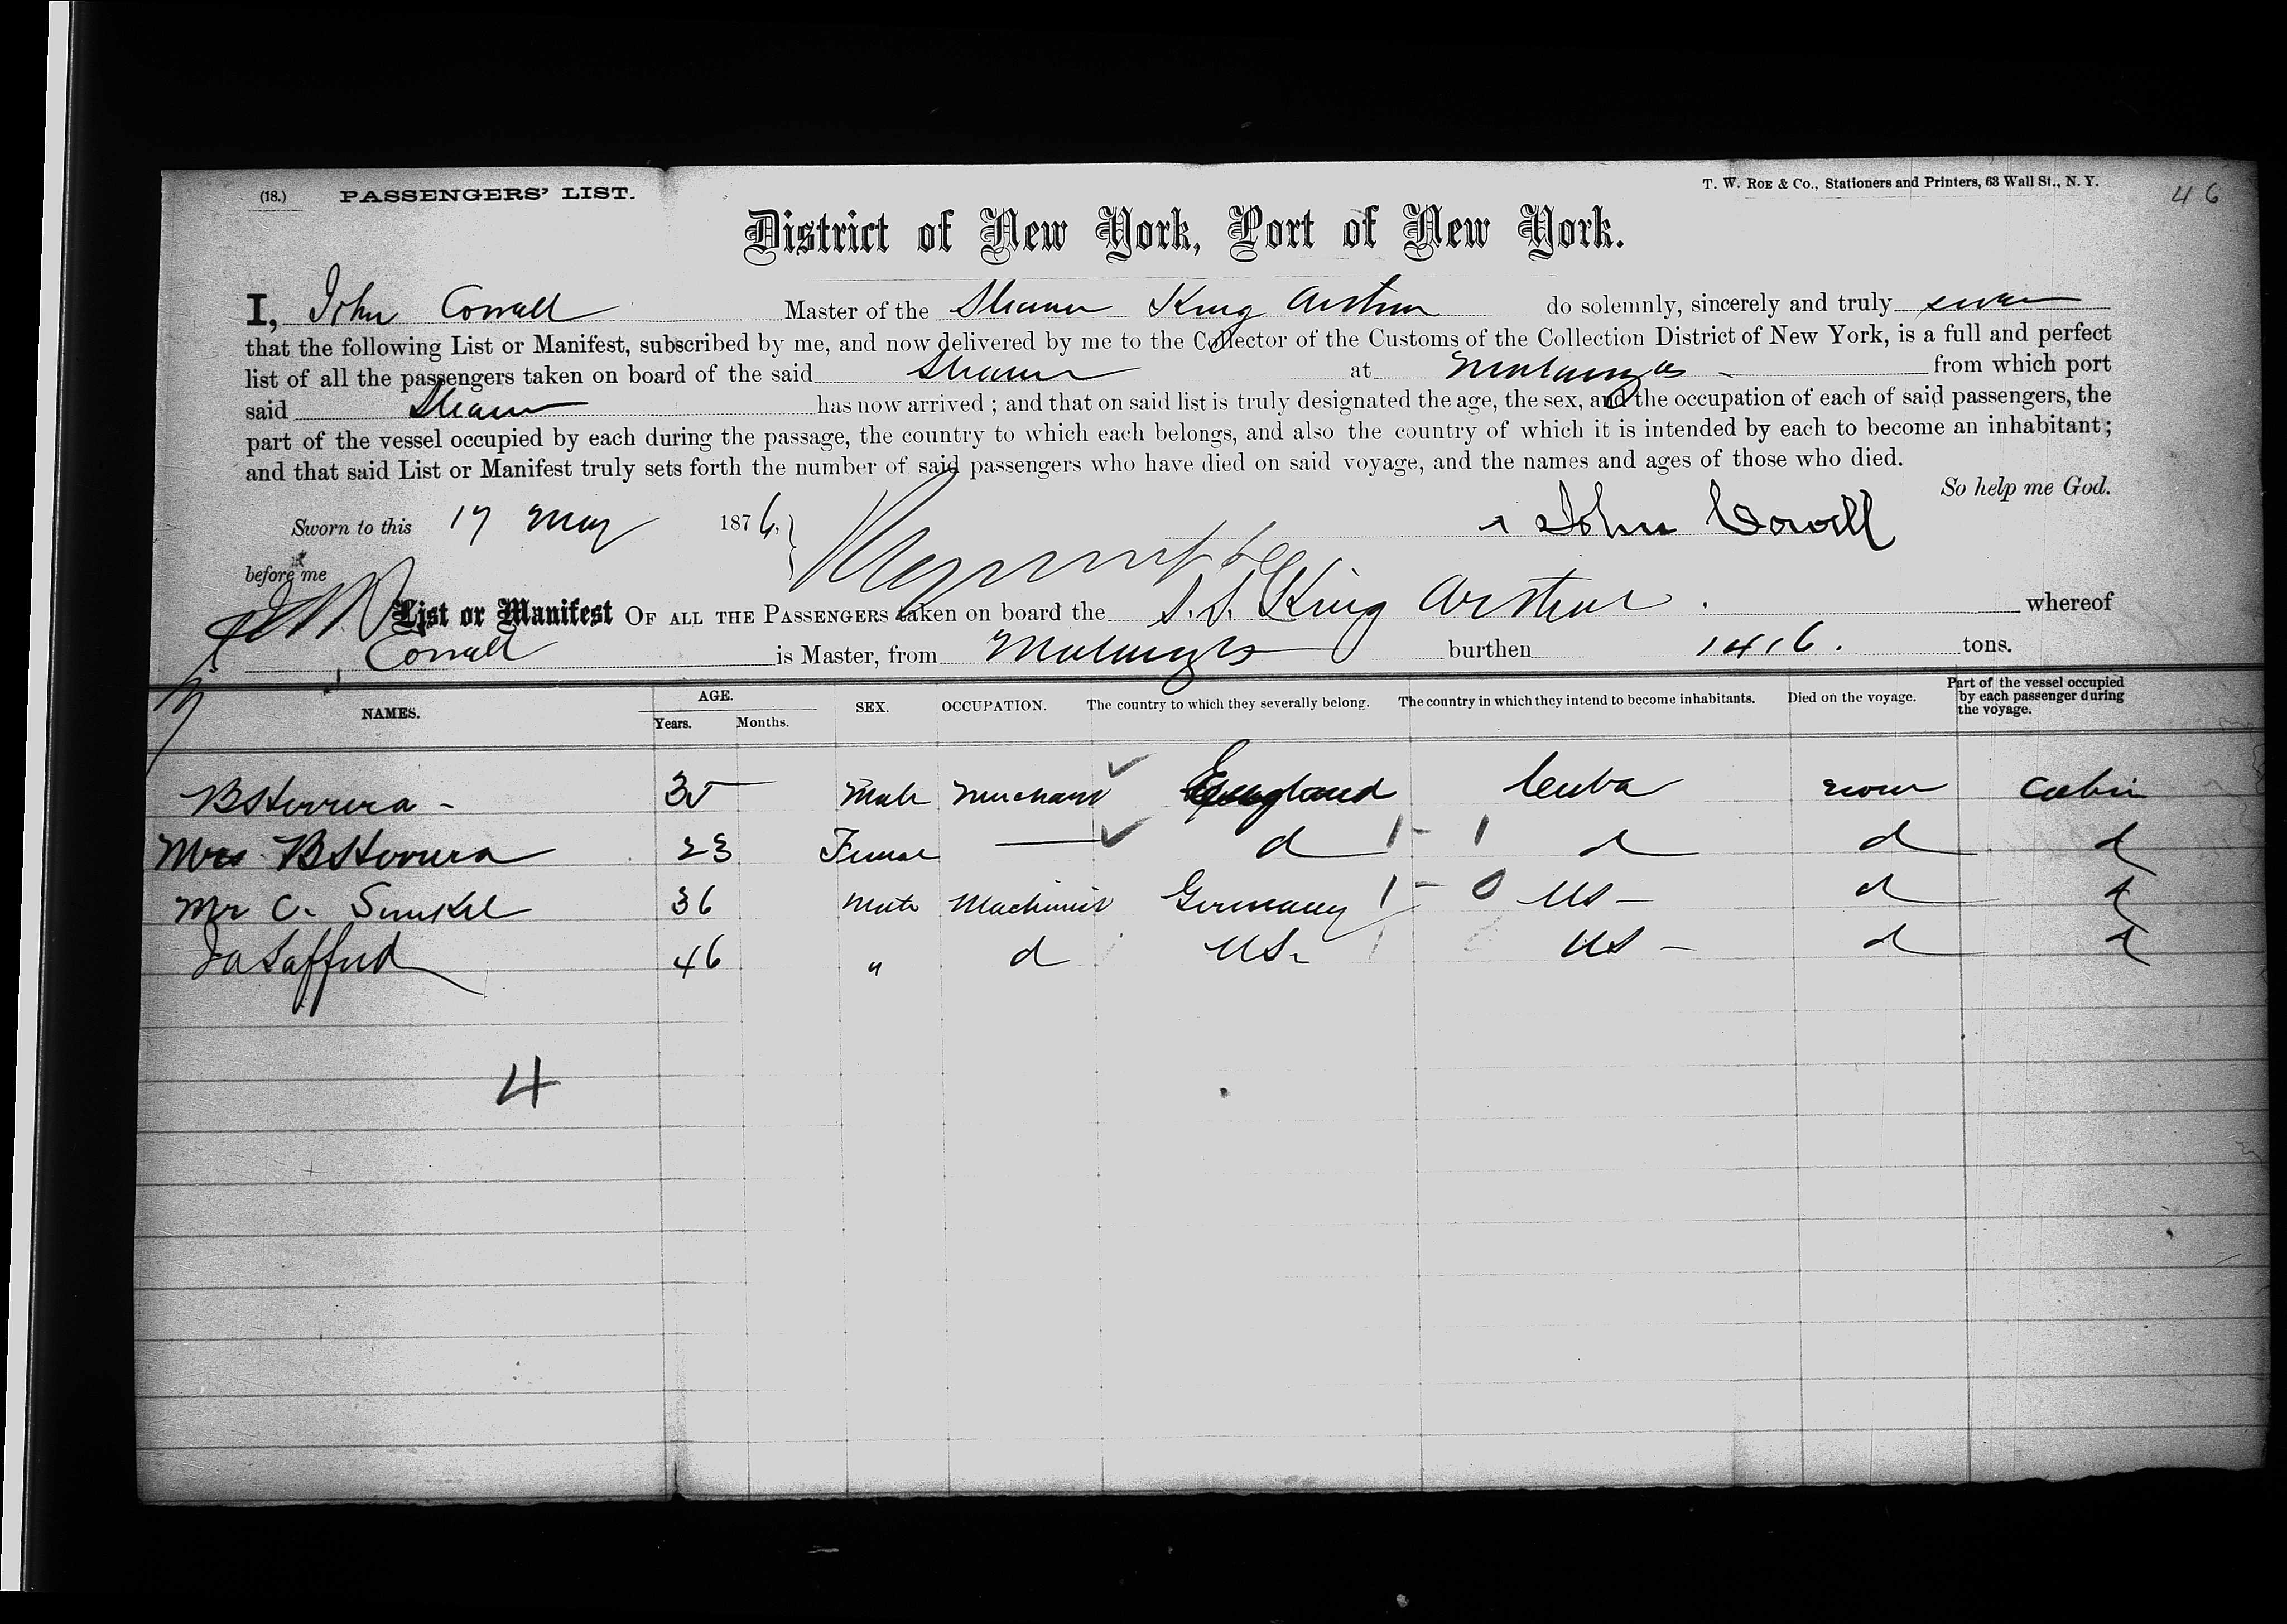 (18.) PASSENGERS' LIST. T. W. ROE & Co., Stationers and Printers, 63 Wall St., N. Y. 46
District of New York, Port of New York.
I, John Corvall Master of the Steamer King Arthur do solemnly, sincerely and truly swear
that the following List or Manifest, subscribed by me, and now delivered by me to the Collector of the Customs of the Collection District of New York, is a full and perfect
list of all the passengers taken on board of the said Steamer at Matanzas from which port
said Steamer has now arrived ; and that on said list is truly designated the age, the sex, and the occupation of each of said passengers, the
part of the vessel occupied by each during the passage, the country to which each belongs, and also the country of which it is intended by each to become an inhabitant ;
and that said List or Manifest truly sets forth the number of said passengers who have died on said voyage, and the names and ages of those who died.
So help me God.
Sworn to this 17 May 1876, John Corvall
before me
List or Manifest OF ALL THE PASSENGERS taken on board the S.S. King Arthur . whereof
Corvall is Master, from Matanzas burthen 1416. tons.
NAMES. AGE. Years. Months. SEX. OCCUPATION. The country to which they severally belong. The country in which they intend to become inhabitants. Died on the voyage. Part of the vessel occupied by each passenger during the voyage.
B Herrera - 35 Male Merchant England Cuba none Cabin
Mrs B Herrera 23 Female — d 1 - 1 d d d
Mr C. Sunkel 36 Male Machinist Germany 1 - 0 US - d d
Safford 46 " d US. 1 US - d d
4